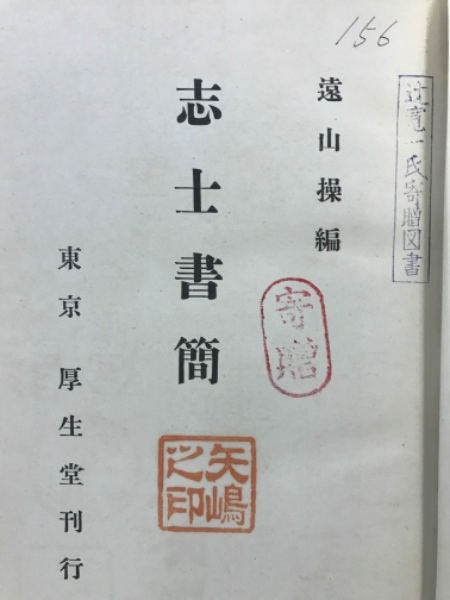 156
辻寛一氏寄贈図書
遠山操編
寄贈
志士書簡
矢嶋之印
東京 厚生堂刊行